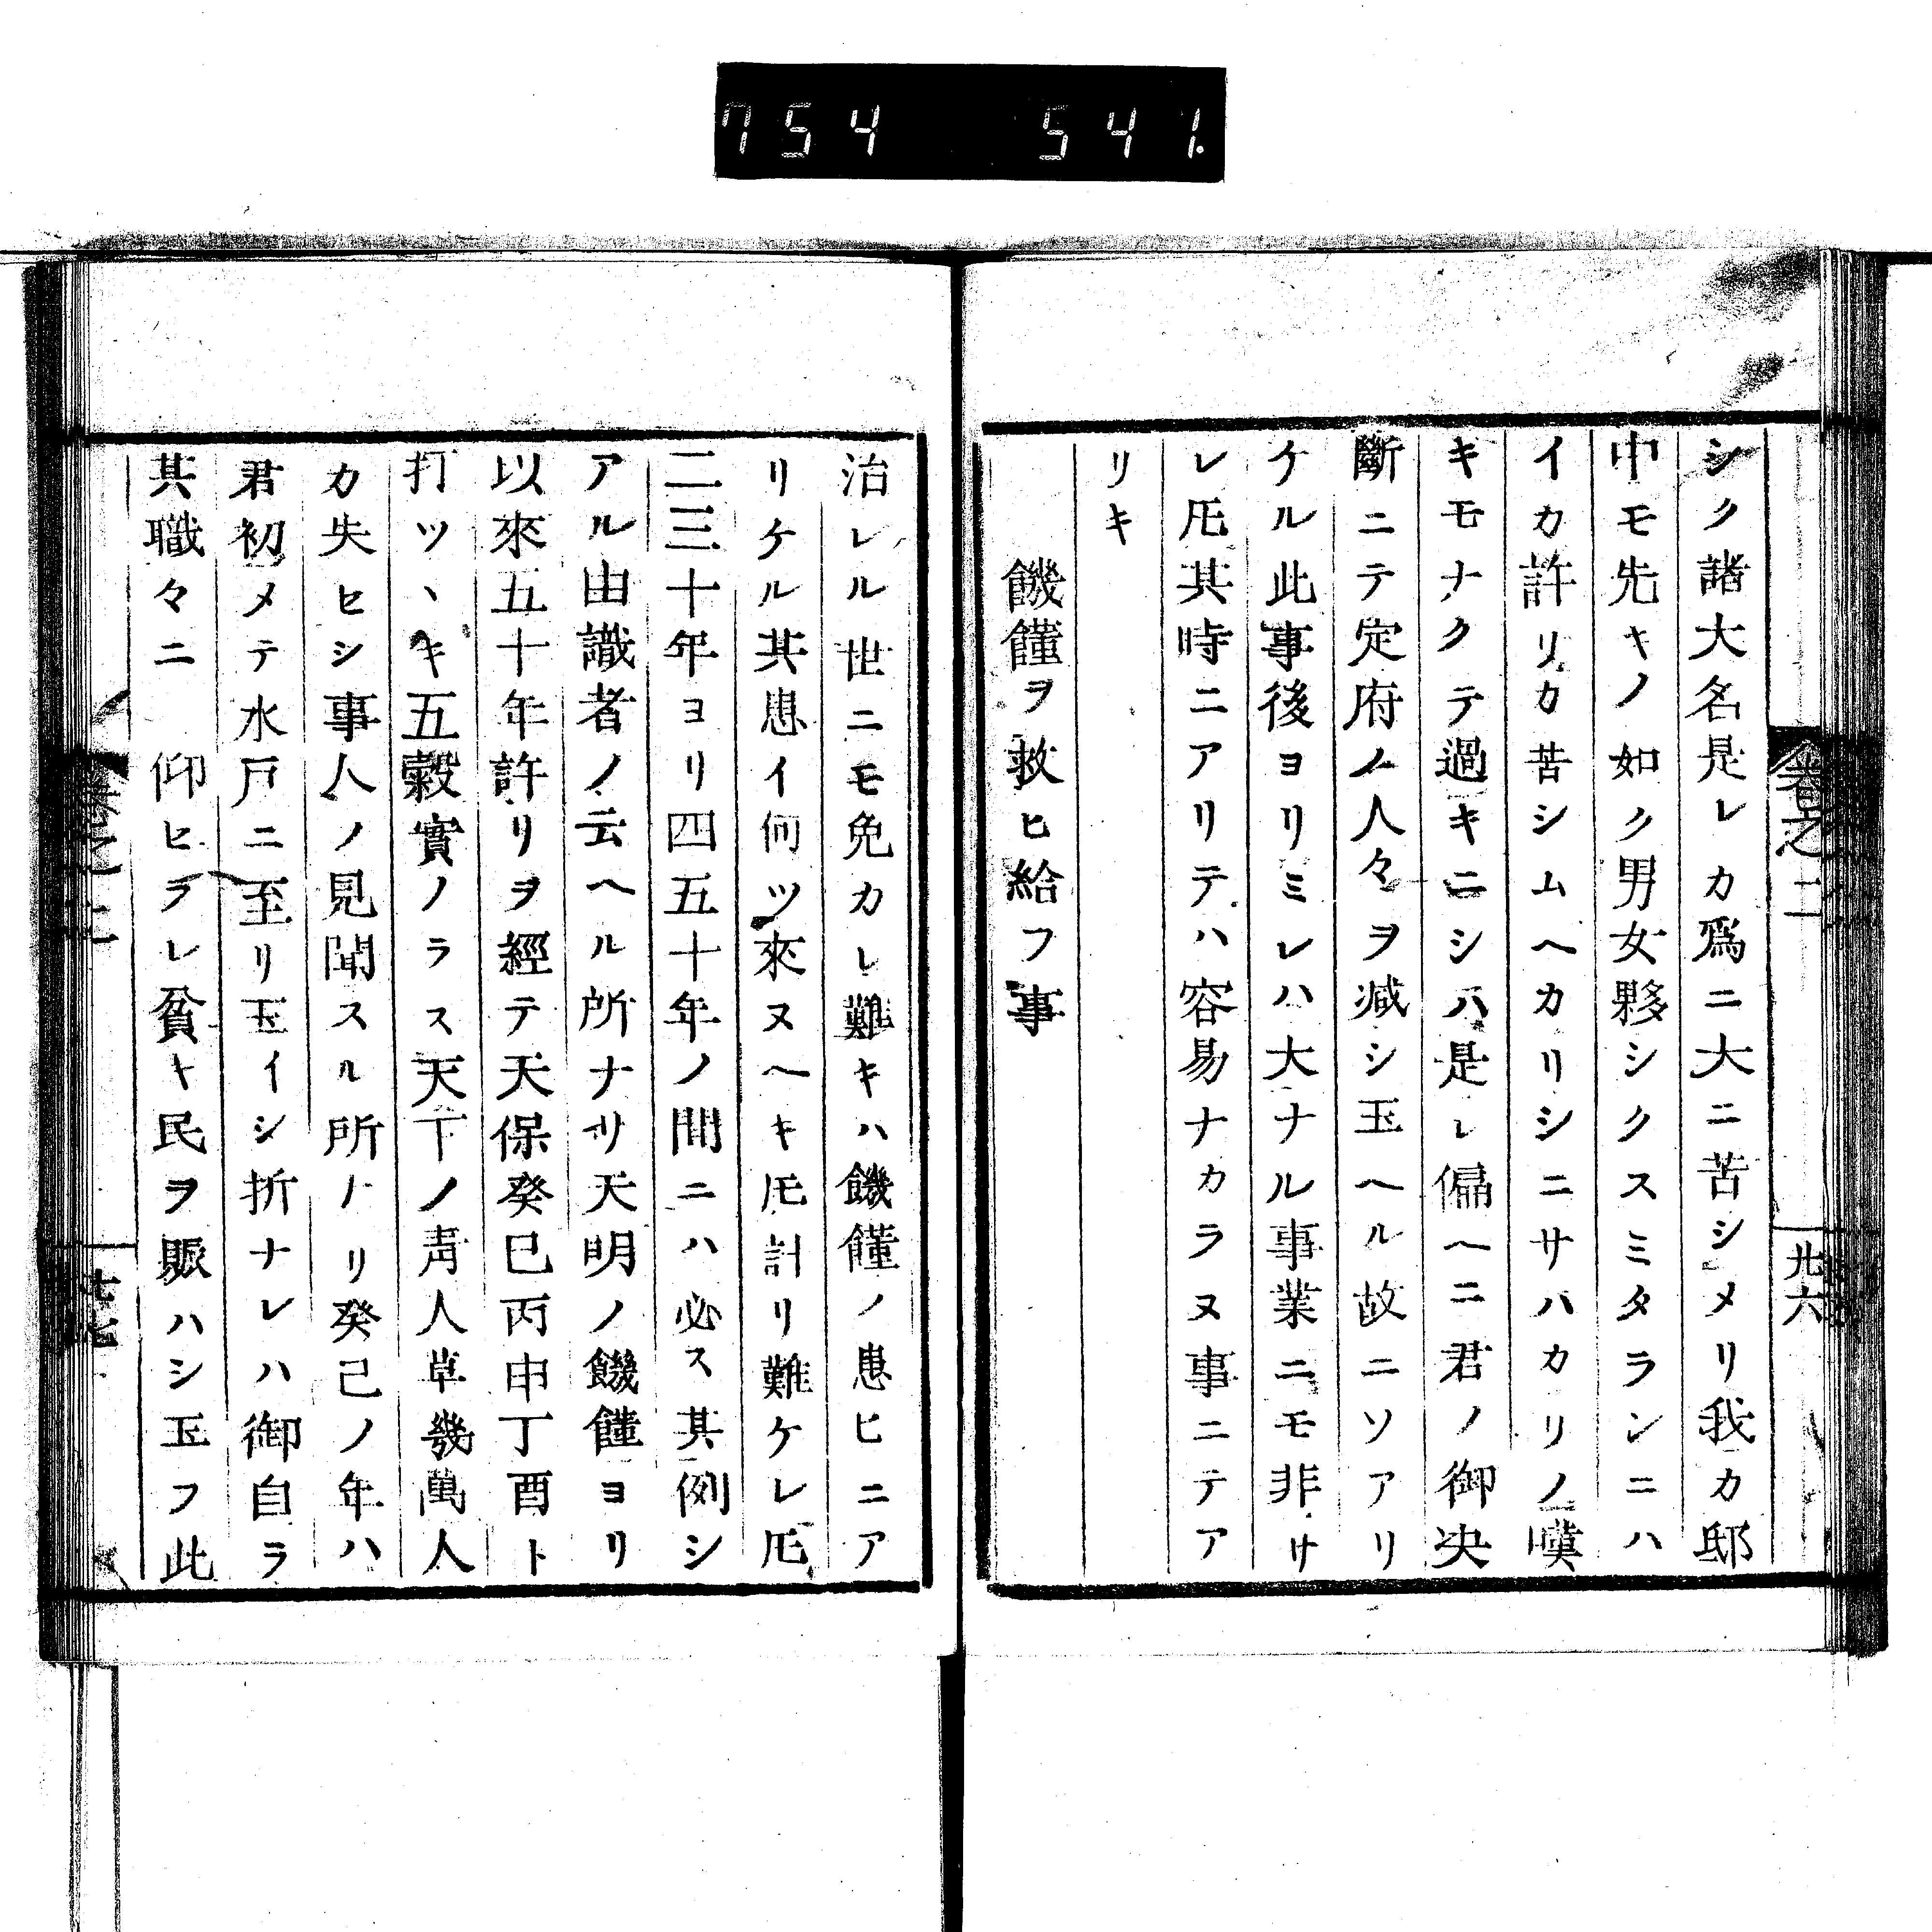 754 541.
卷之二
廿六
シク諸大名是レカ爲ニ大ニ苦シメリ我カ邸
中モ先キノ如ク男女夥シクスミタランニハ
イカ許リカ苦シムヘカリシニサハカリノ嘆
キモナクテ過キニシハ是レ偏ヘニ君ノ御决
斷ニテ定府ノ人々ヲ減シ玉ヘル故ニソアリ
ケル此事後ヨリミレハ大ナル事業ニモ非サ
レ𪜈其時ニアリテハ容易ナカラヌ事ニテア
リキ
饑饉ヲ救ヒ給フ事
治レル世ニモ免カレ難キハ饑饉ノ患ヒニア
リケル其患イ何ツ來ヌヘキ𪜈計リ難ケレ𪜈
二三十年ヨリ四五十年ノ間ニハ必ス其例シ
アル由識者ノ云ヘル所ナリ天明ノ饑饉ヨリ
以來五十年許リヲ經テ天保癸巳丙申丁酉ト
打ツヽキ五穀實ノラス天下ノ青人草幾萬人
カ失ヒシ事人ノ見聞スル所ナリ癸己ノ年ハ
君初メテ水戸ニ至リ玉イシ折ナレハ御自ラ
其職々ニ　仰ヒラレ貧キ民ヲ賑ハシ玉フ此